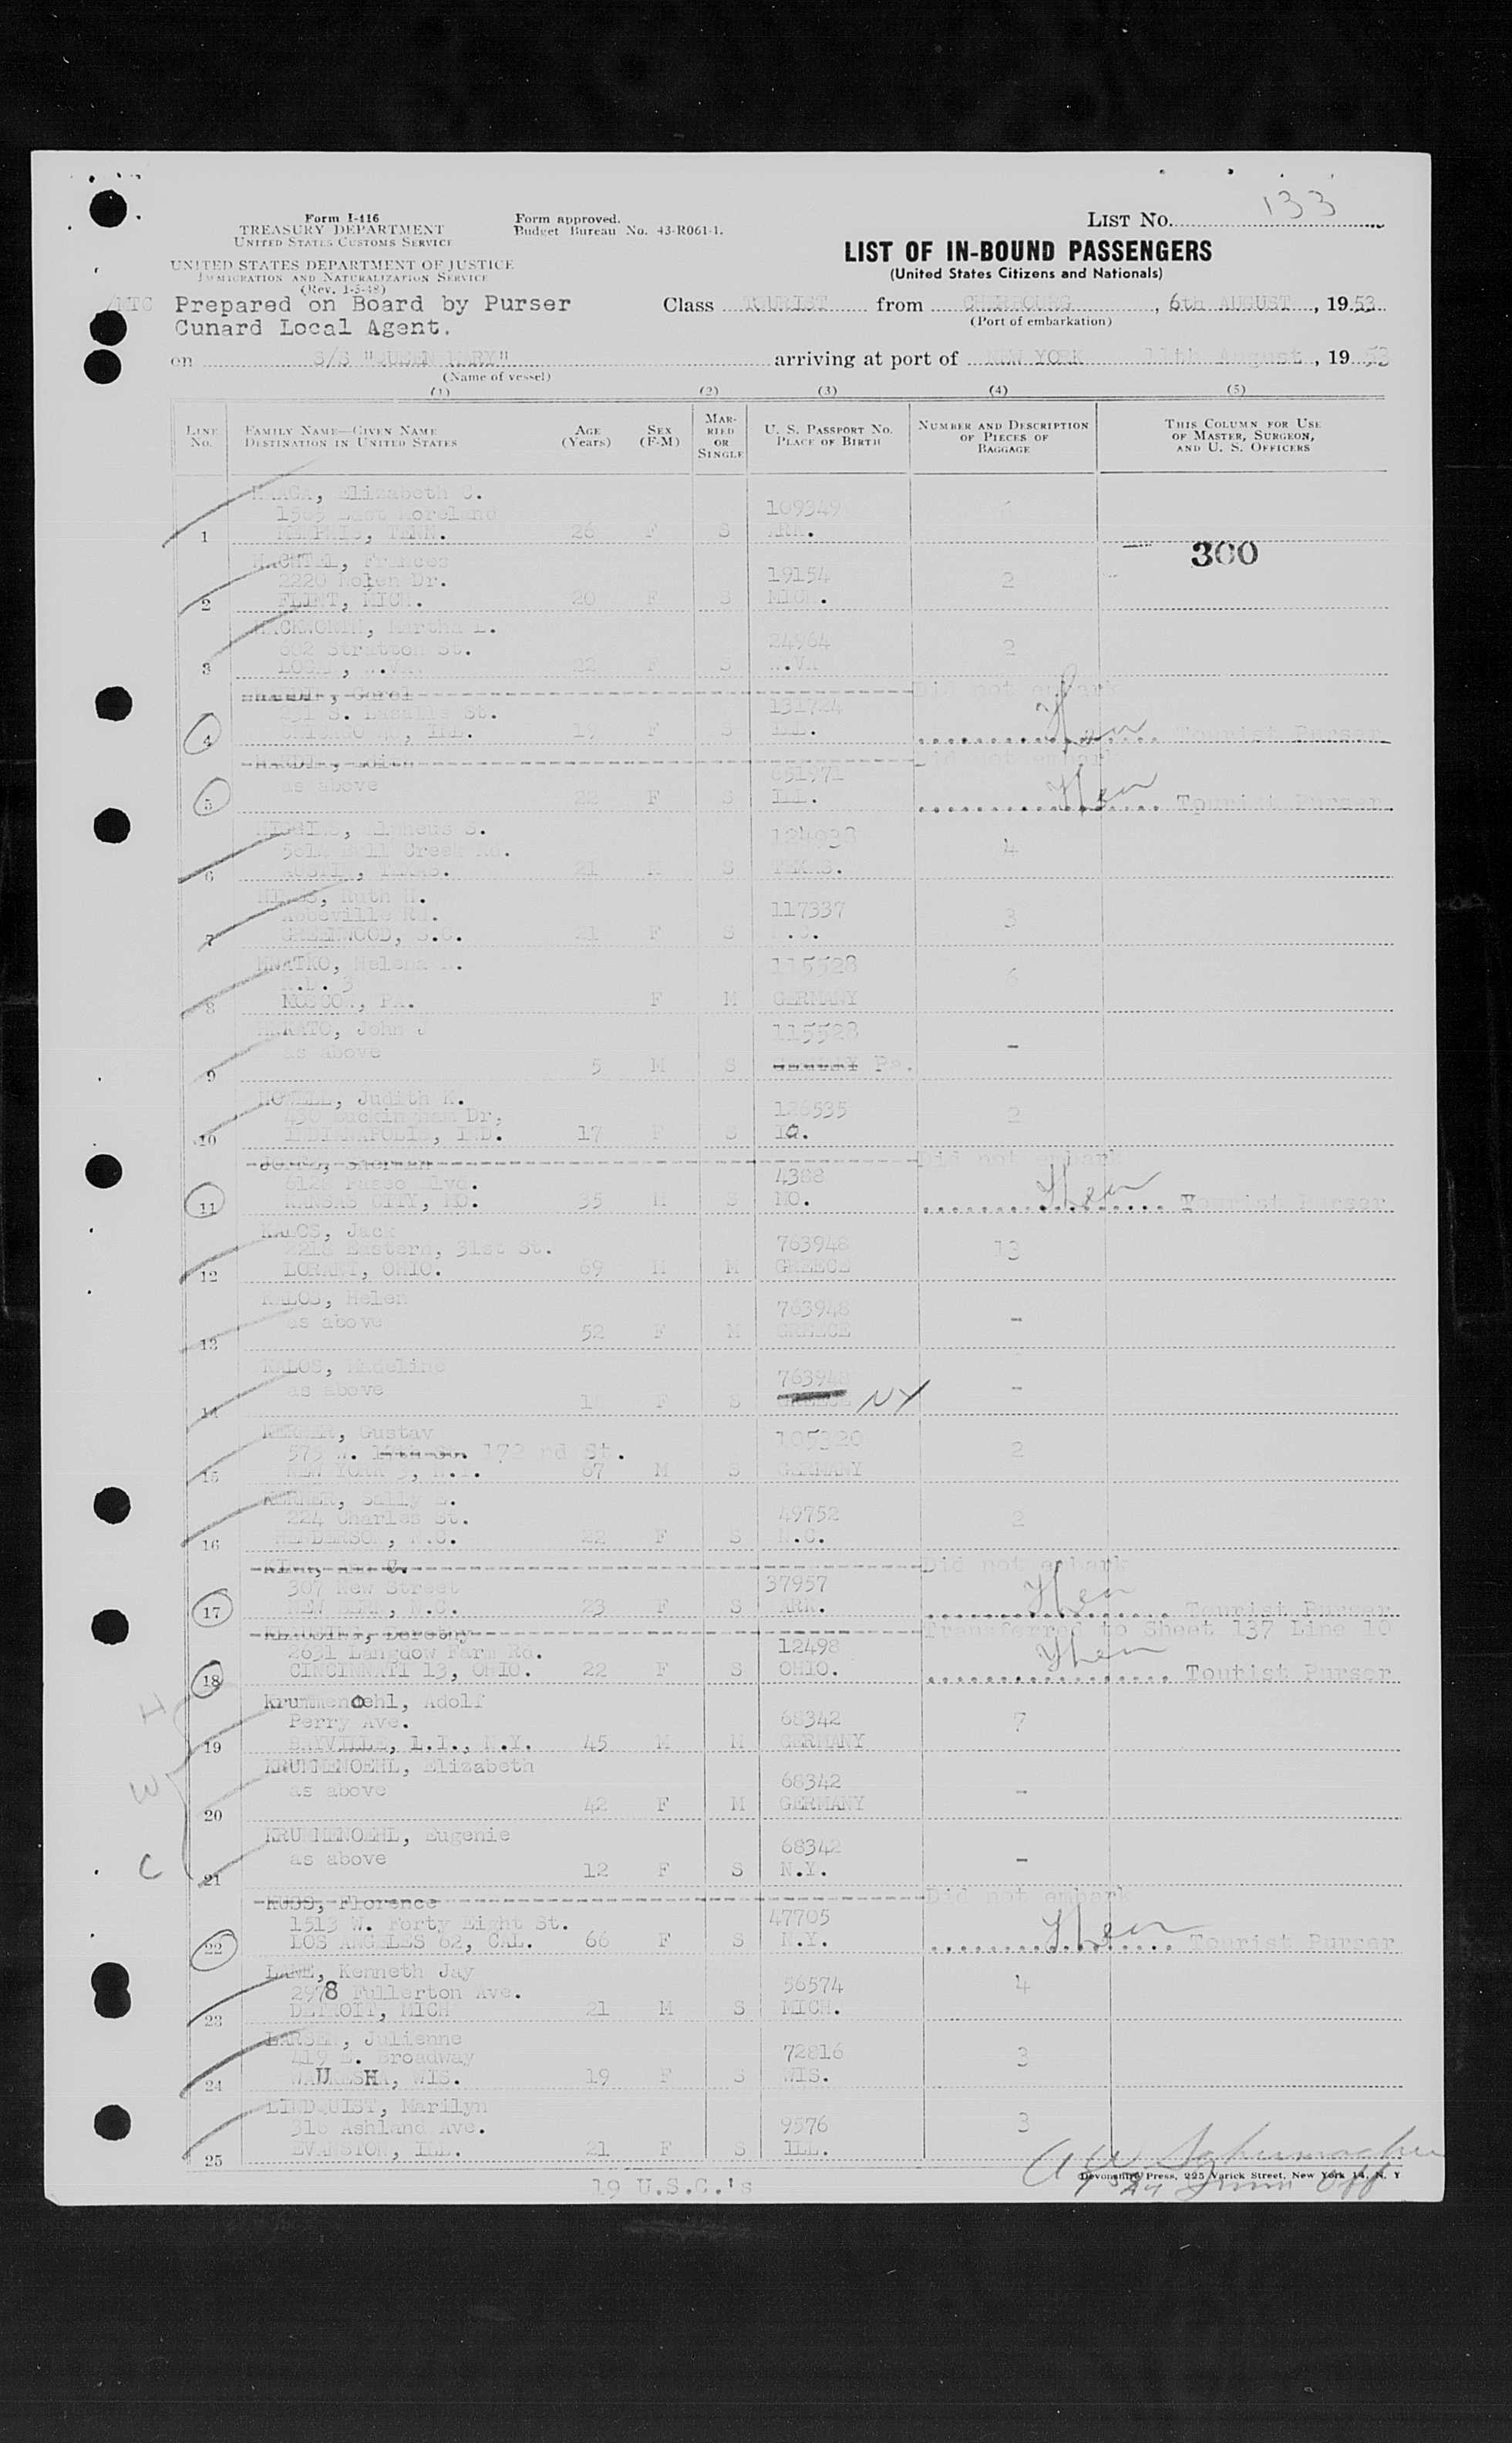 133
LIST NO.
Form I-416
TREASURY DEPARTMENT
UNITED STATES CUSTOMS SERVICE
Form approved.
Budget Bureau No. 43-R061-1.
LIST OF IN-BOUND PASSENGERS
(United States Citizens and Nationals)
UNITED STATES DEPARTMENT OF JUSTICE
IMMIGRATION AND NATURALIZATION SERVICE
(Rev. 1-5-48)
Prepared on Board by Purser
Cunard Local Agent.
Class TOURIST from CHERBOURG, 6th AUGUST, 1953
(Port of embarkation)
on S/S "QUEEN MARY" arriving at port of NEW YORK 11th August, 1953
(Name of vessel)
(1) (2) (3) (4) (5)
LINE NO.
FAMILY NAME—GIVEN NAME
DESTINATION IN UNITED STATES
AGE (Years)
SEX (F-M)
MARRIED OR SINGLE
U. S. PASSPORT NO.
PLACE OF BIRTH
NUMBER AND DESCRIPTION OF PIECES OF BAGGAGE
THIS COLUMN FOR USE OF MASTER, SURGEON, AND U. S. OFFICERS
Elizabeth C.
109349
East Moreland
1 MEMPHIS, TENN. 26 F S ARK.
300
Frances
2220 Dr. 19154 2
2 FLINT, MICH. 20 F S MICH.
Martha L.
Stratton St. 24964 2
3 W.VA. 22 F S W.VA
Carol Did not embark
S. Lasalle St. 131724
4 CHICAGO ILL. 19 F S ILL. Tourist Purser
Did not embark
as above 651971
5 22 F S ILL. Tourist Purser
S.
Creek 4
6 AUSTIN, TEXAS. 21 M S TEXAS.
Ruth H.
Abbeville Rd. 117337 3
7 GREENWOOD, S.C. 21 F S
HNATKO, Helena
R.D. 3 115528 6
8 MOSCOW, PA. F M GERMANY
John J
as above 115528 -
9 5 M S GERMANY Pa.
HOWELL, Judith K.
430 Buckingham Dr. 2
10 INDIANAPOLIS, IND. 17 F S
Did not embark
6128 Paseo Blvd. 4388
11 KANSAS CITY, MO. 35 M S MO. Tourist Purser
KALOS, Jack
2218 Eastern, 31st St. 763948 13
12 OHIO. 69 M M GREECE
KALOS, Helen
as above 763948 -
13 52 F M GREECE
KALOS, Madeline
as above 763948 -
14 F S GREECE NY
Gustav
575 W. 172 nd St. 105320 2
15 NEW YORK N.Y. 67 M S GERMANY
Sally
224 Charles St. 49752 2
16 HENDERSON, N.C. 22 F S N.C.
Did not embark
307 New Street 37957
17 NEW BERN, N.C. 23 F S ARK. Tourist Purser
Dorothy Transferred to Sheet 137 Line 10
2631 Langdow Farm Rd. 12498
18 CINCINNATI 13, OHIO. 22 F S OHIO. Toutist Purser
H
krummenoehl, Adolf
Perry Ave. 68342 7
19 BAYVILLE, L.I., N.Y. 45 M M GERMANY
W
KRUMMENOEHL, Elizabeth
as above 68342 -
20 42 F M GERMANY
C
KRUMMENOEHL, Eugenie
as above 68342 -
21 12 F S N.Y.
KUSS, Florence Did not embark
1513 W. Forty Eight St. 47705
22 LOS ANGELES 62, CAL. 66 F S N.Y. Tourist Purser
LANE, Kenneth Jay
2978 Fullerton Ave. 56574 4
23 DETROIT, MICH 21 M S MICH.
LARSEN, Julienne
419 E. Broadway 72816 3
24 WAUKESHA, WIS. 19 F S WIS.
LINDQUIST, Marilyn
318 Ashland Ave. 9576 3
25 EVANSTON, ILL. 21 F S ILL.
A W Schumacher
Devonshire Press, 225 Varick Street, New York 14, N. Y
19 U.S.C.'s